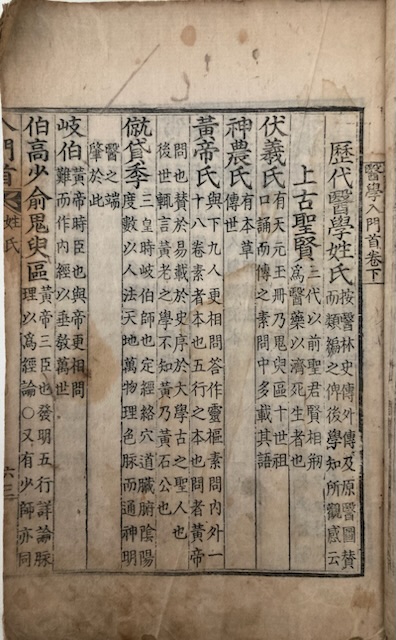 醫學入門首卷下
歷代醫學姓氏 按醫林史傳外傳及原醫圖贊
而類編之俾後學知所觀感云
上古聖賢 三代以前聖君賢相剏
為醫藥以濟死生者也
伏羲氏 有天元玉冊乃鬼臾區十世祖
口誦而傳之素問中多載其語
神農氏 有本草
傳世
黃帝氏 與下九人更相問答作靈樞素問內外一
十八卷素者本也五行之本也問者黃帝
問也贊於易載於史序於大學古之聖人也
後世輒言黃老之學不知黃乃黃石公也
僦貸季 三皇時岐伯師也定經絡穴道臟腑陰陽
度數以人法天地萬物理色脉而通神明
醫之端
肇於此
岐伯 黃帝時臣也與帝更相問
難而作內經以垂教萬世
伯高少俞鬼臾區 黃帝三臣也發明五行詳論脉
理以為經論○又有少師亦同
入門首 姓氏